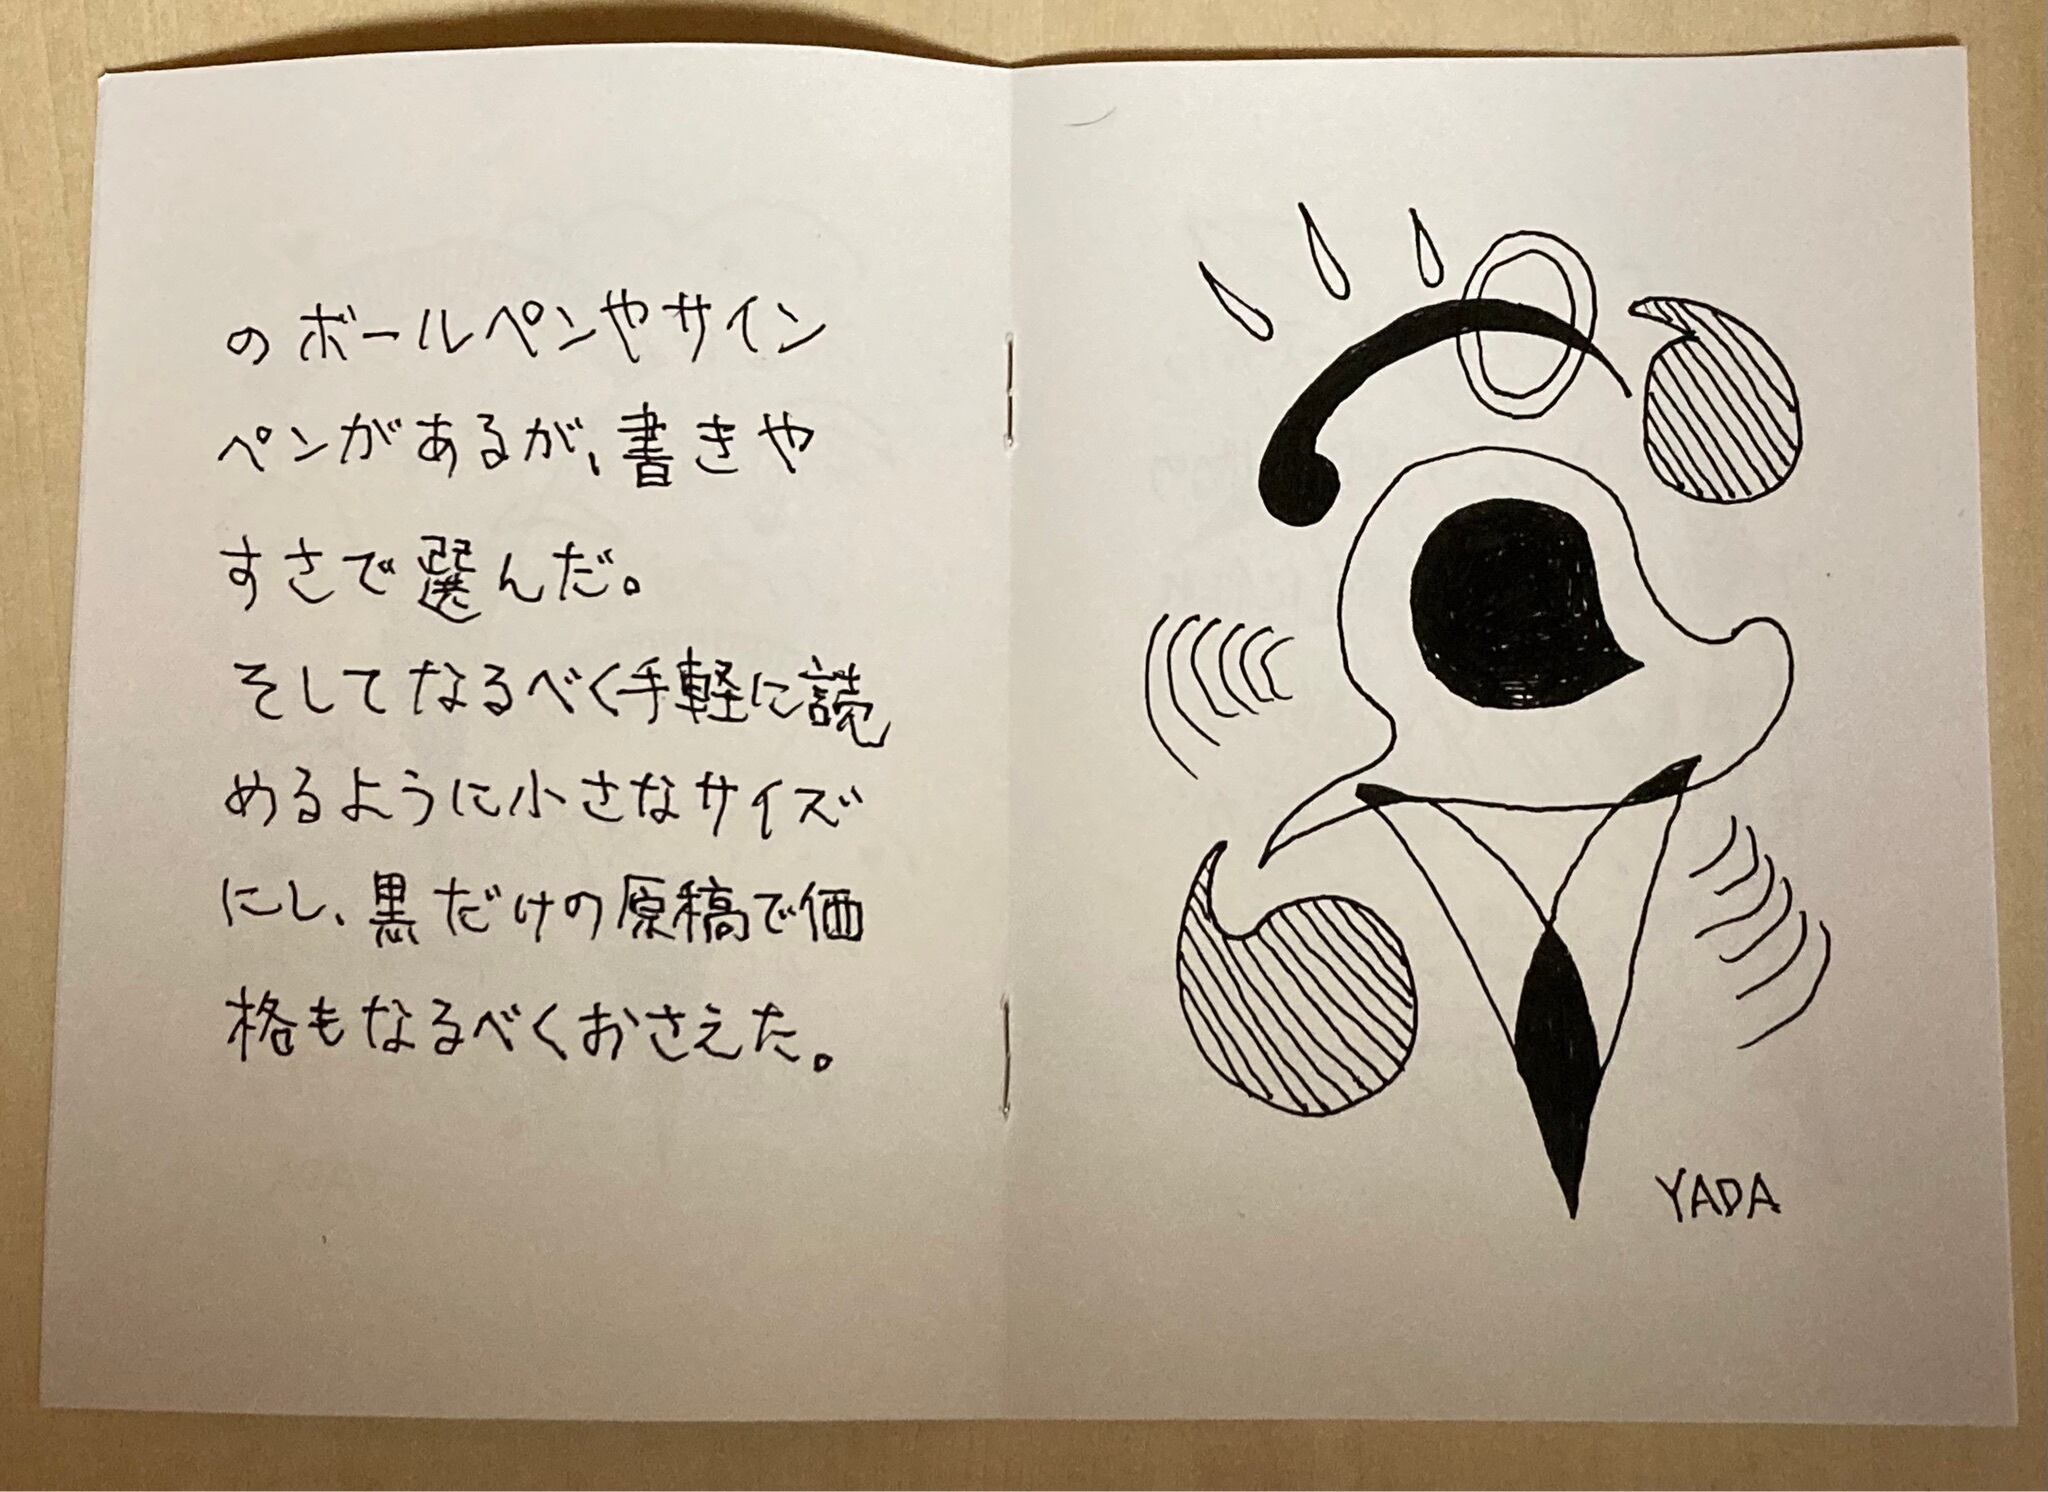 のボールペンやサイン
ペンがあるが、書きや
すさで選んだ。
そしてなるべく手軽に読
めるように小さなサイズ
にし、黒だけの原稿で価
格もなるべくおさえた。
YADA